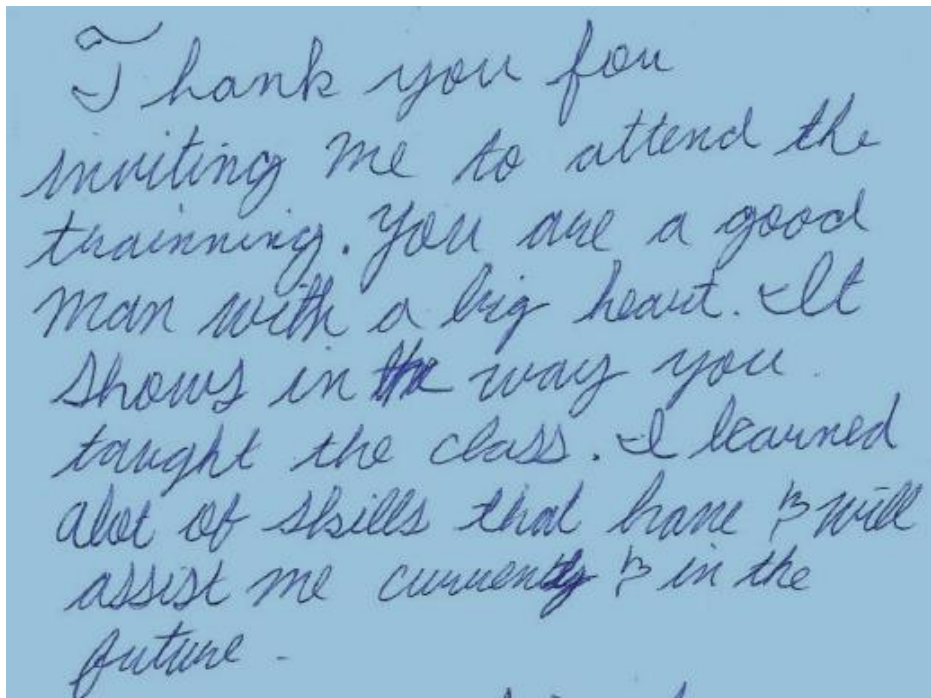 Thank you for
inviting me to attend the
trainning. You are a good
man with a big heart. It
shows in the way you
taught the class. I learned
alot of skills that have & will
assist me currently & in the
future.